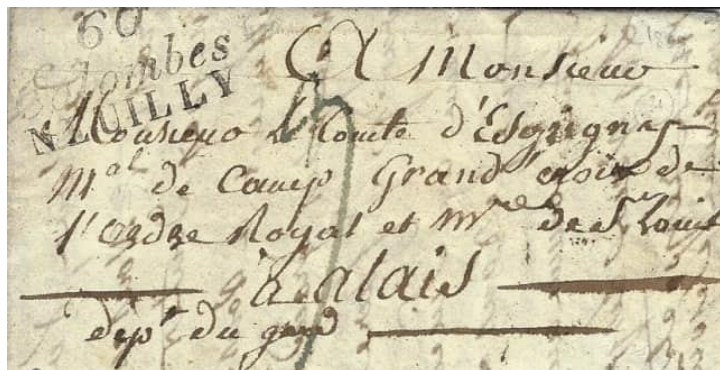 60
Colombes
NEUILLY
A Monsieur
Monsieur le Comte d'Esgrigny
Mal de Camp Grand croix de
l'ordre Royal et Mre de St Louis
à alais
dept du gard